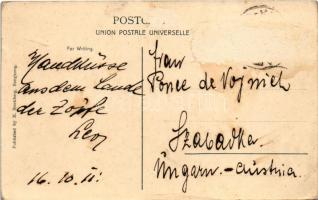 POSTC
UNION POSTALE UNIVERSELLE
For Writing.
Handküsse
aus dem Lande
der Zöpfe
Leo
16.10.11.
Frau
Ponce de Vojnich
Szabadka.
Ungarn.-Austria.
Published by M. Sternberg, Hongkong.